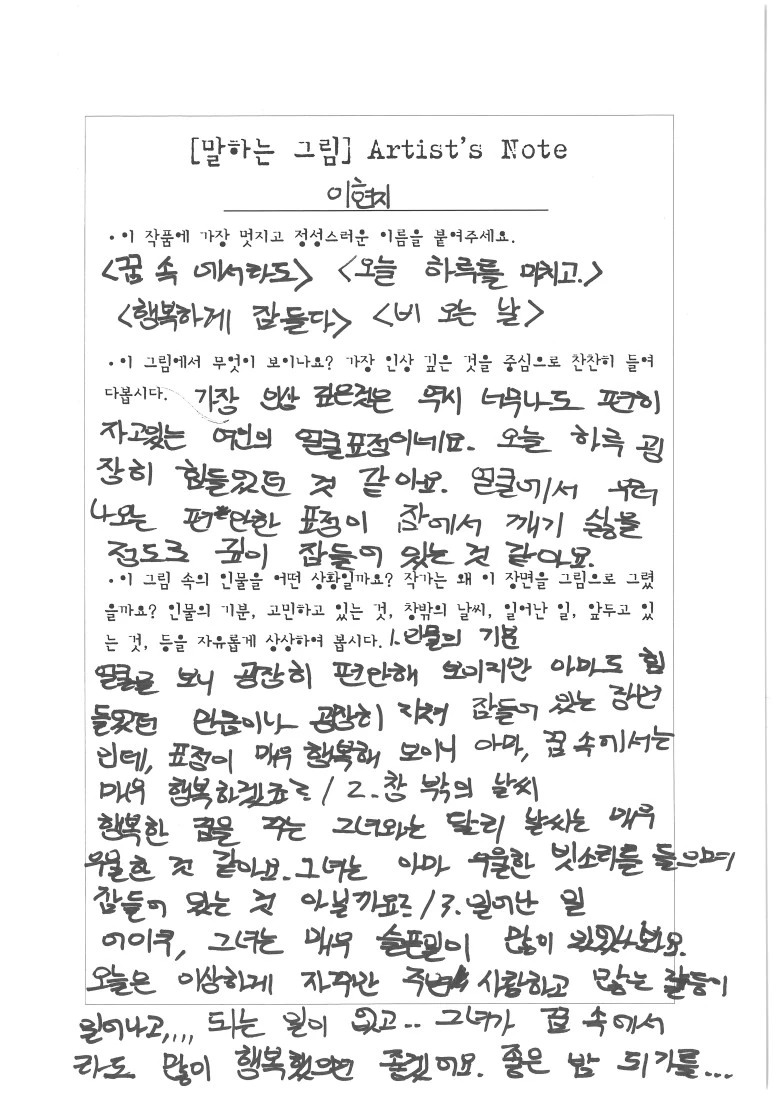 [말하는 그림] Artist's Note
이현지
• 이 작품에 가장 멋지고 정성스러운 이름을 붙여주세요.
<꿈 속 에서라도> <오늘 하루를 마치고.>
<행복하게 잠들다> <비 오는 날>
• 이 그림에서 무엇이 보이나요? 가장 인상 깊은 것을 중심으로 찬찬히 들여
다봅시다. 가장 인상 깊은것은 역시 너무나도 편히
자고있는 여인의 얼굴표정이네요. 오늘 하루 굉
장히 힘들었던 것 같아요. 얼굴에서 우러
나오는 편안한 표정이 잠에서 깨기 싫을
정도로 깊이 잠들어 있는 것 같아요.
• 이 그림 속의 인물은 어떤 상황일까요? 작가는 왜 이 장면을 그림으로 그렸
을까요? 인물의 기분, 고민하고 있는 것, 창밖의 날씨, 일어난 일, 앞두고 있
는 것, 등을 자유롭게 상상하여 봅시다. 1. 인물의 기분
얼굴을 보니 굉장히 편안해 보이지만 아마도 힘
들었던 만큼이나 굉장히 지쳐 잠들어 있는 장면
인데, 표정이 매우 행복해 보이니 아마, 꿈 속에서는
매우 행복하겠죠? / 2. 창 밖의 날씨
행복한 꿈을 꾸는 그녀와는 달리 날씨는 매우
우울한 것 같아요. 그녀는 아마 우울한 빗소리를 들으며
잠들어 있는 것 아닐까요? / 3. 일어난 일
어이쿠, 그녀는 매우 슬픈일이 많이 있었나봐요.
오늘은 이상하게 자꾸만 주변 사람하고 많은 갈등이
일어나고,,,, 되는 일이 없고.. 그녀가 꿈 속에서
라도 많이 행복했으면 좋겠어요. 좋은 밤 되기를...